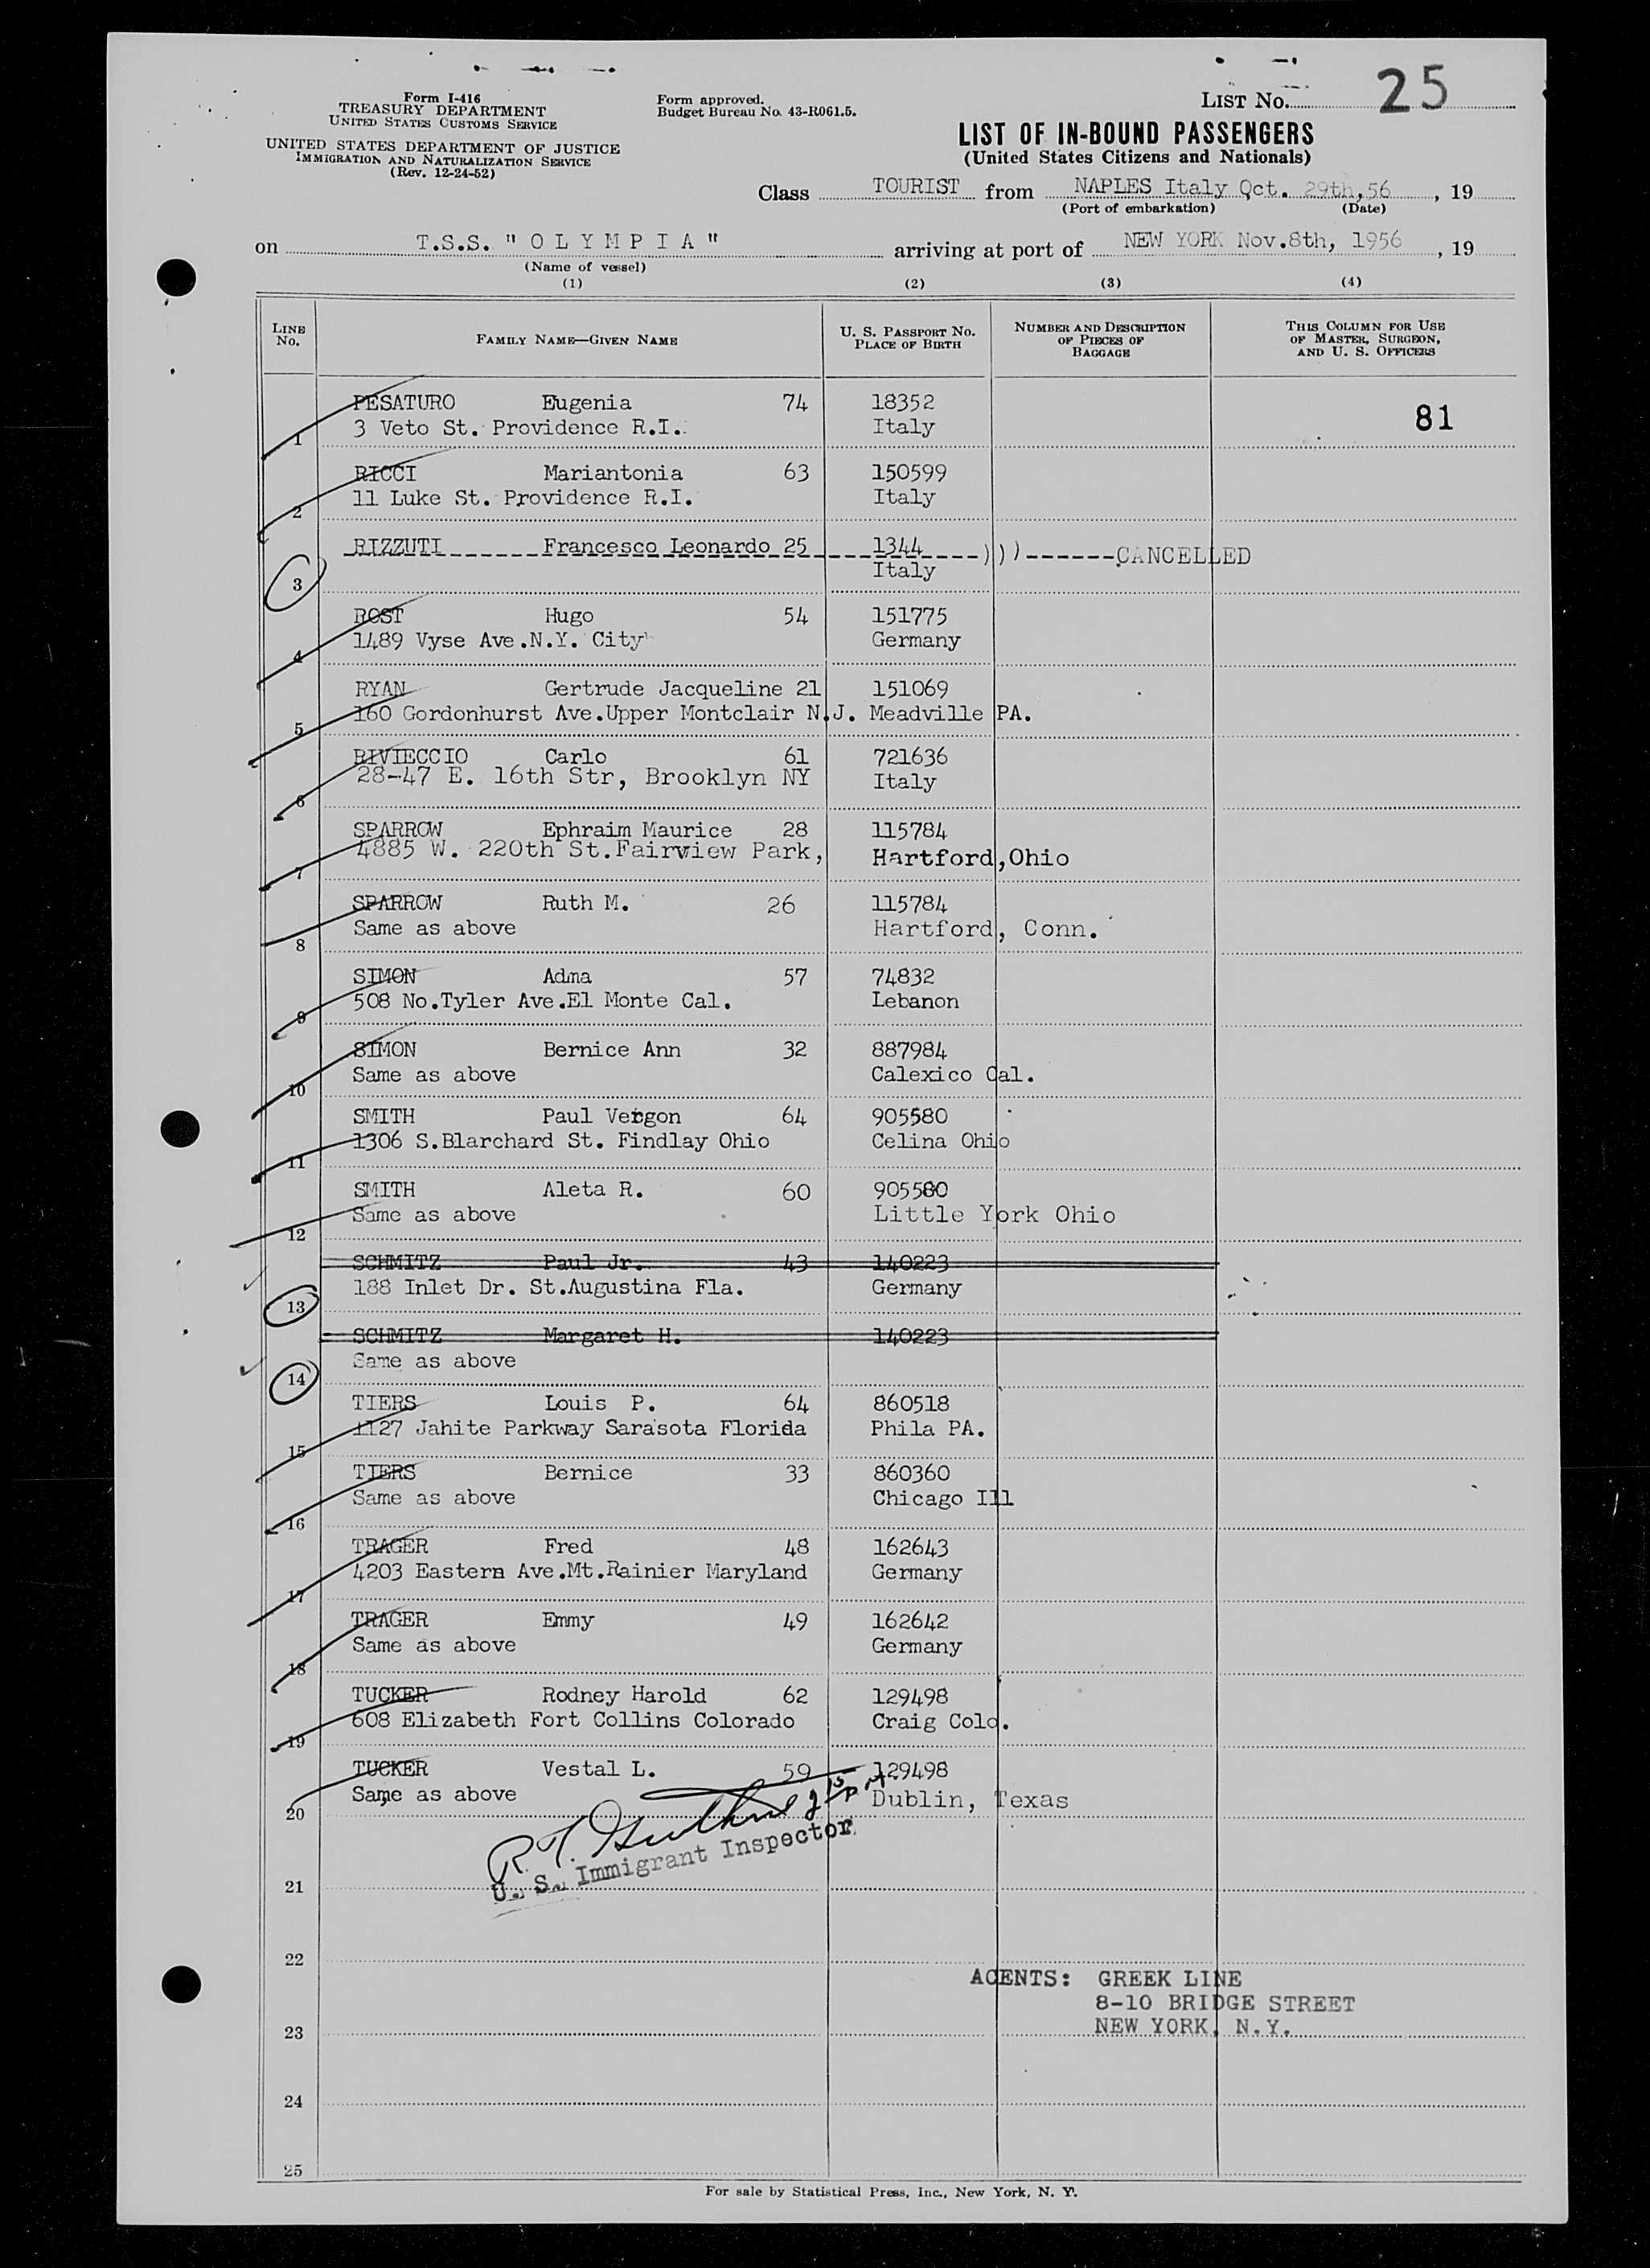 Form I-416
TREASURY DEPARTMENT
UNITED STATES CUSTOMS SERVICE
UNITED STATES DEPARTMENT OF JUSTICE
IMMIGRATION AND NATURALIZATION SERVICE
(Rev. 12-24-52)
Form approved.
Budget Bureau No. 43-R061.5.
LIST No. 25
LIST OF IN-BOUND PASSENGERS
(United States Citizens and Nationals)
Class TOURIST from NAPLES Italy Oct. 29th, 56, 19
(Port of embarkation) (Date)
on T.S.S. "OLYMPIA" arriving at port of NEW YORK Nov.8th, 1956, 19
(Name of vessel)
(1) (2) (3) (4)
LINE No. FAMILY NAME—GIVEN NAME U. S. PASSPORT No. PLACE OF BIRTH NUMBER AND DESCRIPTION OF PIECES OF BAGGAGE THIS COLUMN FOR USE OF MASTER, SURGEON, AND U. S. OFFICERS
PESATURO Eugenia 74 18352 81
1 3 Veto St. Providence R.I. Italy
RICCI Mariantonia 63 150599
2 11 Luke St. Providence R.I. Italy
RIZZUTI Francesco Leonardo 25 1344 )))------CANCELLED
3 Italy
ROST Hugo 54 151775
4 1489 Vyse Ave.N.Y. City Germany
RYAN Gertrude Jacqueline 21 151069
5 160 Gordonhurst Ave.Upper Montclair N.J. Meadville PA.
RIVIECCIO Carlo 61 721636
6 28-47 E. 16th Str, Brooklyn NY Italy
SPARROW Ephraim Maurice 28 115784
7 4885 W. 220th St.Fairview Park, Hartford,Ohio
SPARROW Ruth M. 26 115784
8 Same as above Hartford, Conn.
SIMON Adma 57 74832
9 508 No.Tyler Ave.El Monte Cal. Lebanon
SIMON Bernice Ann 32 887984
10 Same as above Calexico Cal.
SMITH Paul Vergon 64 905580
11 1306 S.Blarchard St. Findlay Ohio Celina Ohio
SMITH Aleta R. 60 905580
12 Same as above Little York Ohio
SCHMITZ Paul Jr. 43 140223
13 188 Inlet Dr. St.Augustina Fla. Germany
SCHMITZ Margaret H. 140223
14 Same as above
TIERS Louis P. 64 860518
15 1127 Jahite Parkway Sarasota Florida Phila PA.
TIERS Bernice 33 860360
16 Same as above Chicago Ill
TRAGER Fred 48 162643
17 4203 Eastern Ave.Mt.Rainier Maryland Germany
TRAGER Emmy 49 162642
18 Same as above Germany
TUCKER Rodney Harold 62 129498
19 608 Elizabeth Fort Collins Colorado Craig Colo.
TUCKER Vestal L. 59 129498
20 Same as above Dublin, Texas
U. S. Immigrant Inspector
21
22
AGENTS: GREEK LINE
8-10 BRIDGE STREET
23 NEW YORK, N.Y.
24
25
For sale by Statistical Press, Inc., New York, N. Y.